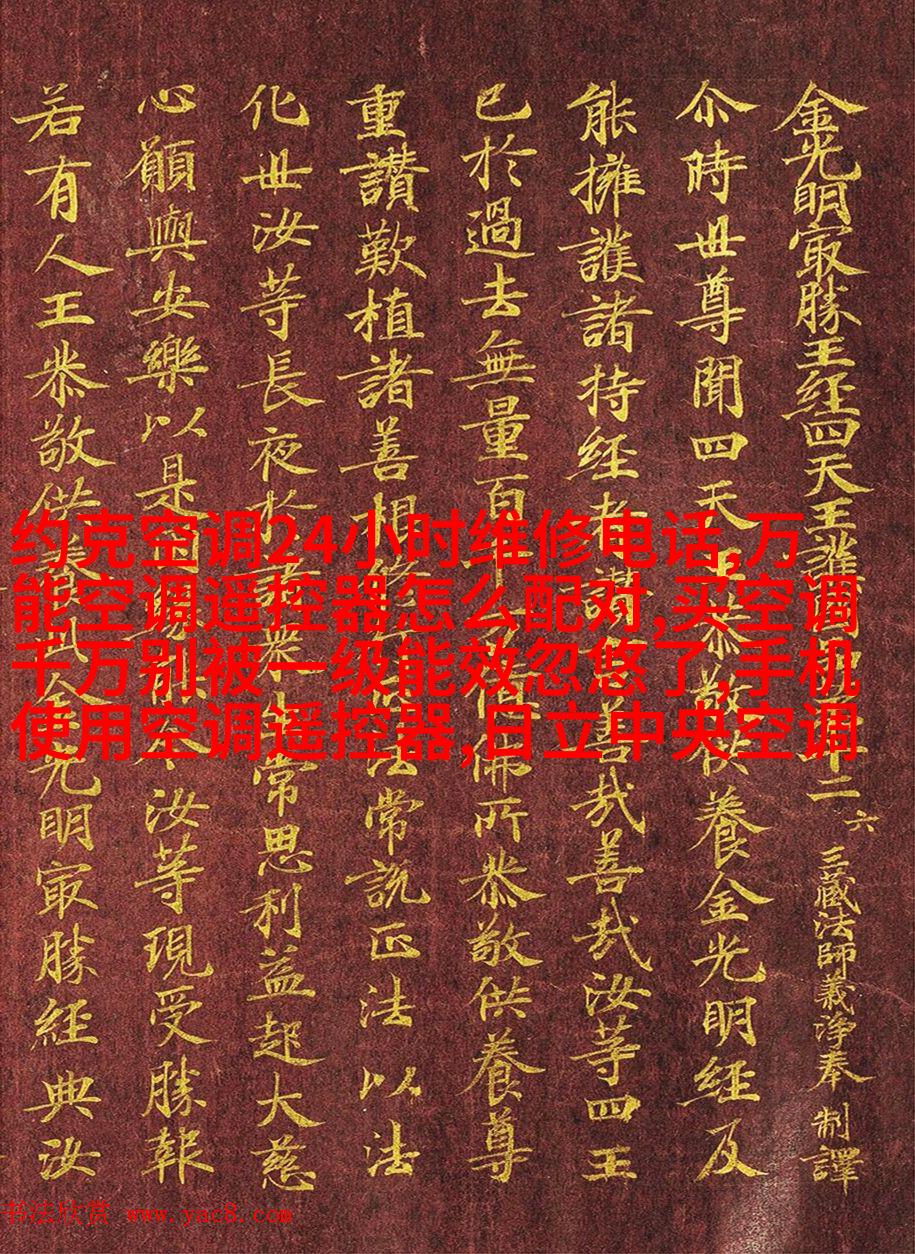 金光明冣勝王經四天王護二 六 三藏法師義淨奉 制譯
尒時世尊聞四天恭敬供養金光明經及
能擁護諸持經者讚善哉善哉汝等四王
已於過去無量百千佛所恭敬供養尊
重讚歎植諸善根修法常說正法以法
化世汝等長夜於諸衆常思利益起大慈
心願與安樂以是因令汝等現受勝報
若有人王恭敬供養金光明冣勝經典汝
约克空调24小时维修电话,万
能空调遥控器怎么配对,买空调
千万别被一级能效忽悠了,手机
使用空调遥控器,日立中央空调
书法欣赏 www.yac8.com